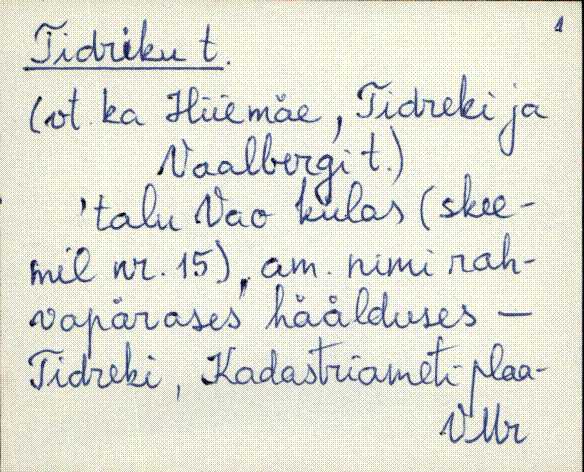 1
Tidriku t.
(vt. ka Hiiemäe, Tidreki ja
Vaalbergi t.)
'talu Vao külas (skee-
mil nr. 15), am. nimi rah-
vapärases häälduses —
Tidreki, Kadastriameti plaa-
VMr